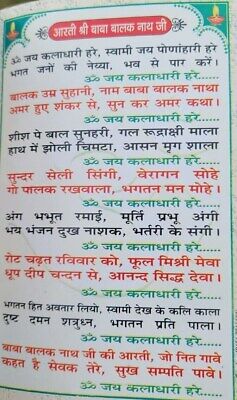 आरती श्री बाबा बालक नाथ जी
ॐ जय कलाधारी हरे, स्वामी जय पोणांहारी हरे
भगत जनों की नेय्या, भव से पार करें।
ॐ जय कलाधारी हरे......
बालक उम्र सुहानी, नाम बाबा बालक नाथा
अमर हुए शंकर से, सुन कर अमर कथा।
ॐ जय कलाधारी हरे......
शीश पे बाल सुनहरी, गल रूद्राक्षी माला
हाथ में झोली चिमटा, आसन मृग शाला
ॐ जय कलाधारी हरे......
सुन्दर सेली सिंगी, वेरागन सोहे
गो पालक रखवाला, भगतन मन मोहे।
ॐ जय कलाधारी हरे......
अंग भभूत रमाई, मूर्ति प्रभू अंगी
भय भंजन दुख नाशक, भर्तरी के संगी।
ॐ जय कलाधारी हरे......
रोट चढ़त रविवार को, फूल मिश्री मेवा
धूप दीप चन्दन से, आनन्द सिद्ध देवा।
ॐ जय कलाधारी हरे......
भगतन हित अवतार लियो, स्वामी देख के कलि काला
दुष्ट दमन शत्रुध्न, भगतन प्रति पाला।
ॐ जय कलाधारी हरे......
बाबा बालक नाथ जी की आरती, जो नित गावे
कहत है सेवक तेरे, सुख सम्पति पावे।
ॐ जय कलाधारी हरे......